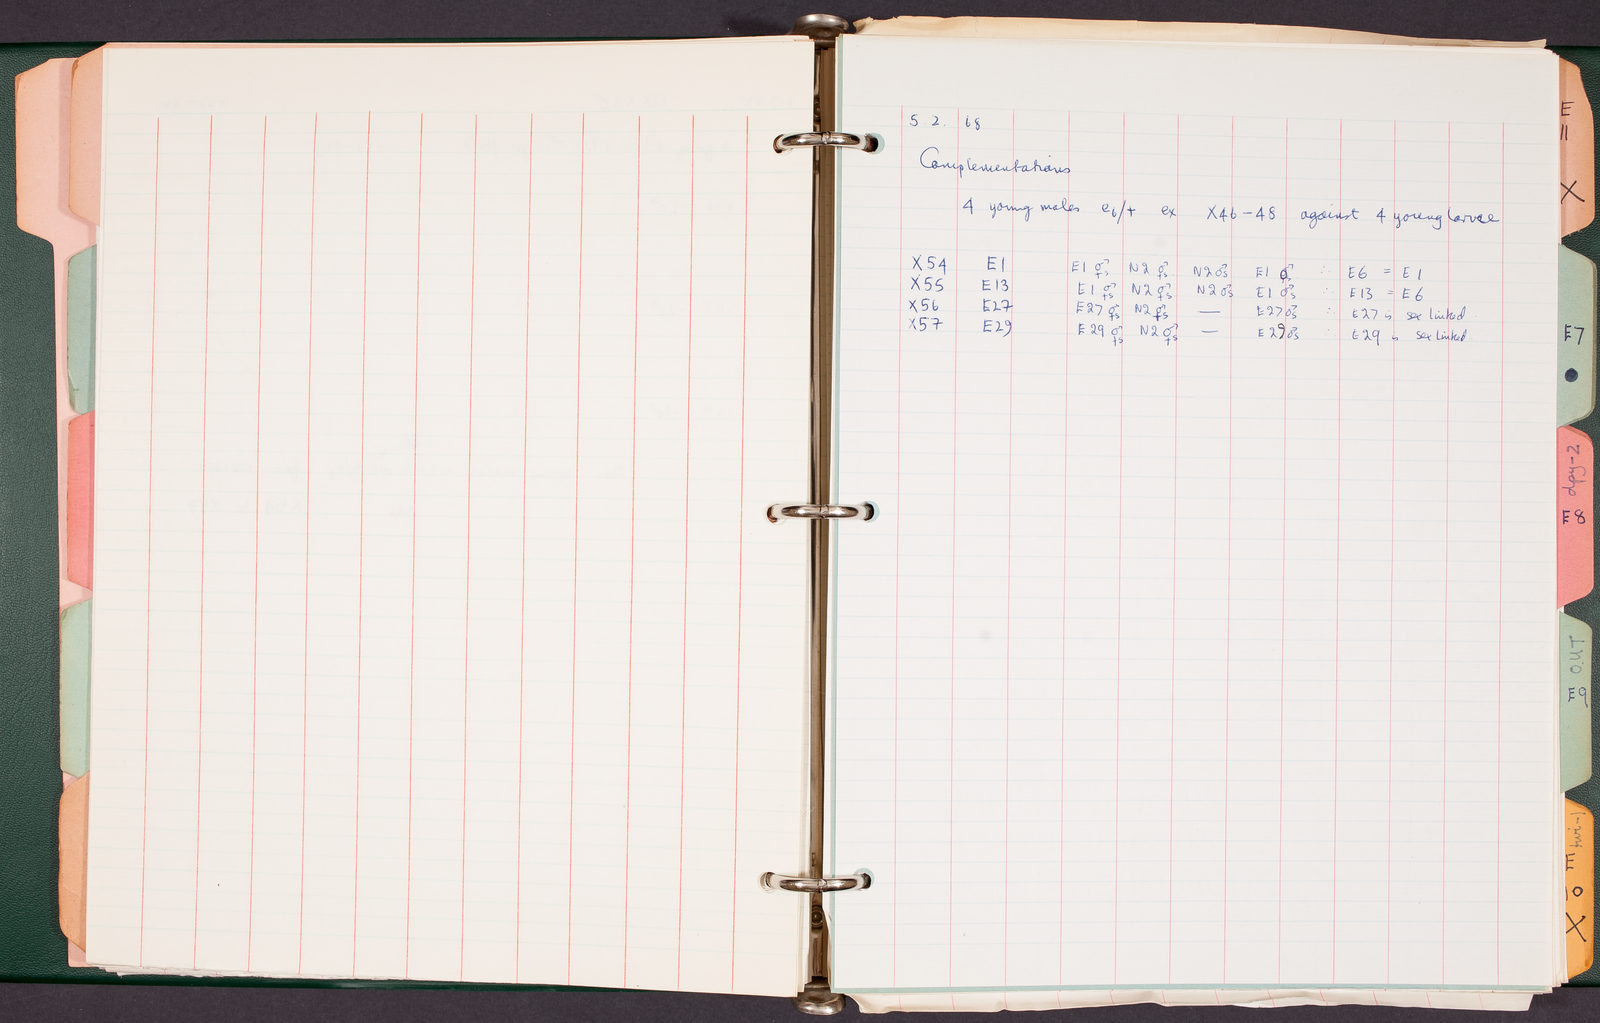 5. 2. 68
Complementations
4 young males e6/+ ex X46-48 against 4 young larvae
X54 E1 E1 ⚥s N2 ⚥s N2 ♂s E1 ♂s ∴ E6 = E1
X55 E13 E1 ⚥s N2 ⚥s N2 ♂s E1 ♂s ∴ E13 = E6
X56 E27 E27 ⚥s N2 ⚥s — E27 ♂s ∴ E27 is sex linked.
X57 E29 E29 ⚥s N2 ⚥s — E29 ♂s ∴ E29 is sex linked.
E
11
X
E7
dpy-2
E8
OUT
E9
twi-1
E
10
X